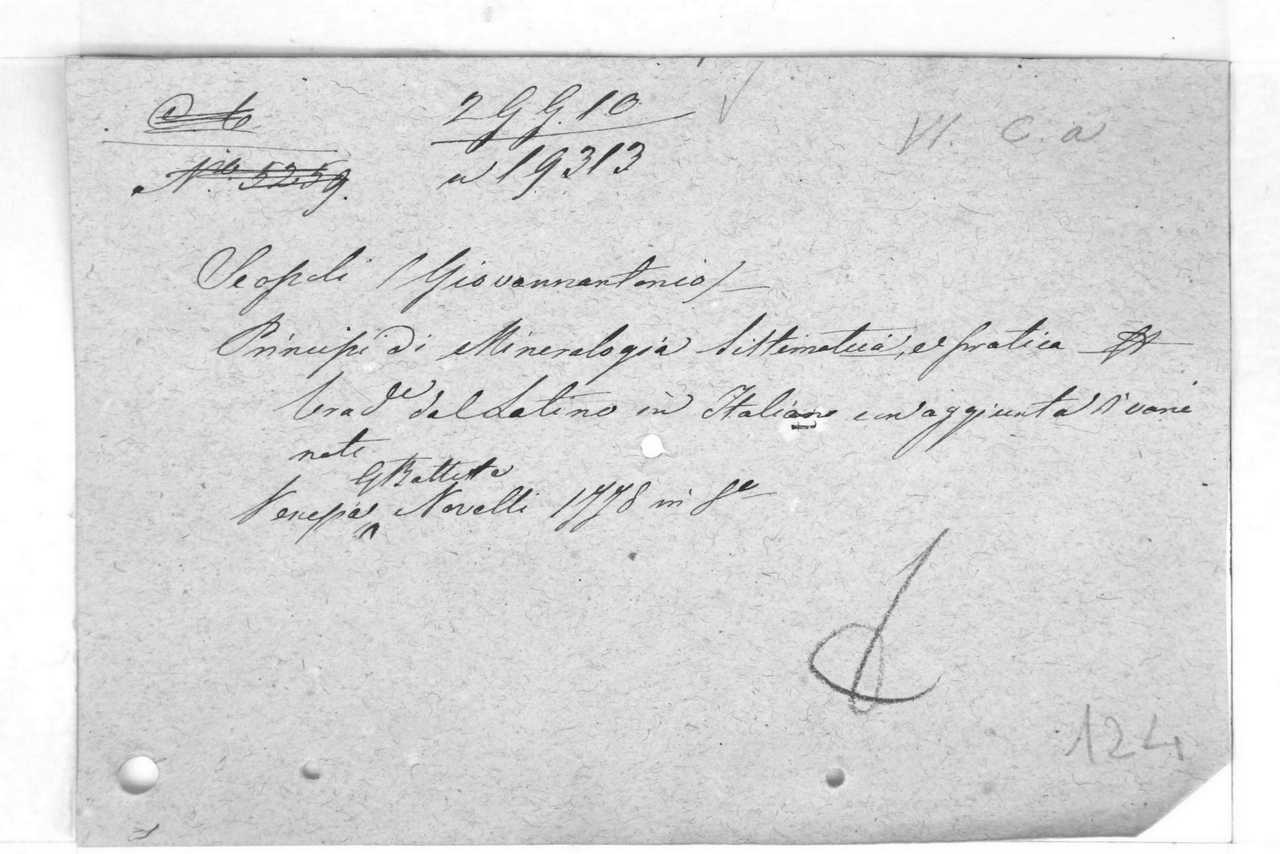 2 G G. 10
VI. C. a
N.ro 5259.
n 19313
Scopoli (Giovannantonio)
Principi di Mineralogia Sistematica, e pratica
trad.e dal Latino in Italiano con aggiunta di varie
note
G Battista
Venezia Novelli 1778 in 8°
124